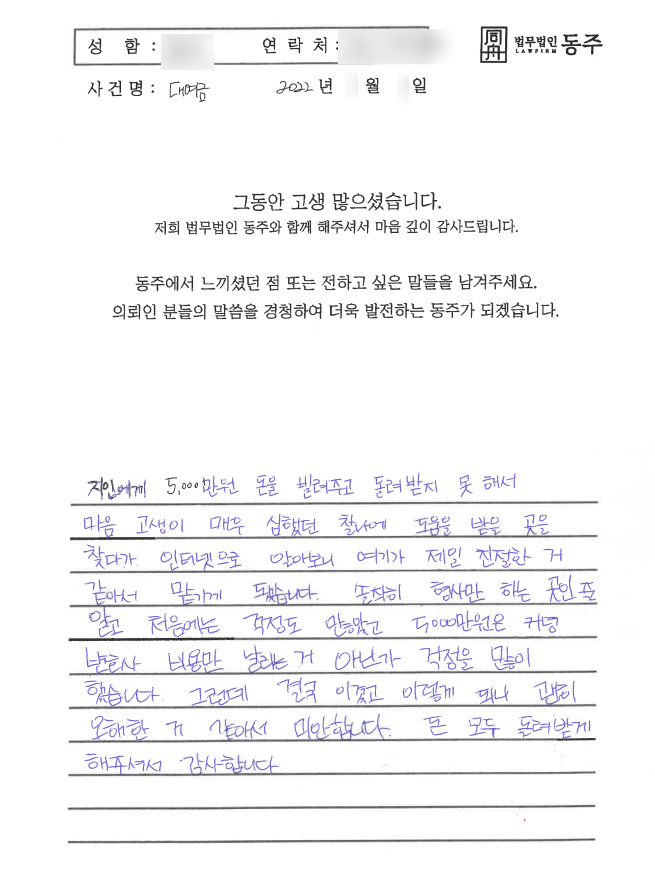 성 함 : 연 락 처 : 同舟 법무법인 동주 LAWFIRM
사 건 명 : 대여금 2022 년 월 일
그동안 고생 많으셨습니다.
저희 법무법인 동주와 함께 해주셔서 마음 깊이 감사드립니다.
동주에서 느끼셨던 점 또는 전하고 싶은 말들을 남겨주세요.
의뢰인 분들의 말씀을 경청하여 더욱 발전하는 동주가 되겠습니다.
지인에게 5,000만원 돈을 빌려주고 돌려받지 못 해서
마음 고생이 매우 심했던 찰나에 도움을 받을 곳을
찾다가 인터넷으로 알아보니 여기가 제일 친절한 거
같아서 맡기게 됐습니다. 솔직히 형사만 하는 곳인 줄
알고 처음에는 걱정도 많았고 5,000만원은 커녕
변호사 비용만 날리는 거 아닌가 걱정을 많이
했습니다. 그런데 결국 이겼고 이렇게 되니 괜히
오해한 거 같아서 미안합니다. 돈 모두 돌려받게
해주셔서 감사합니다